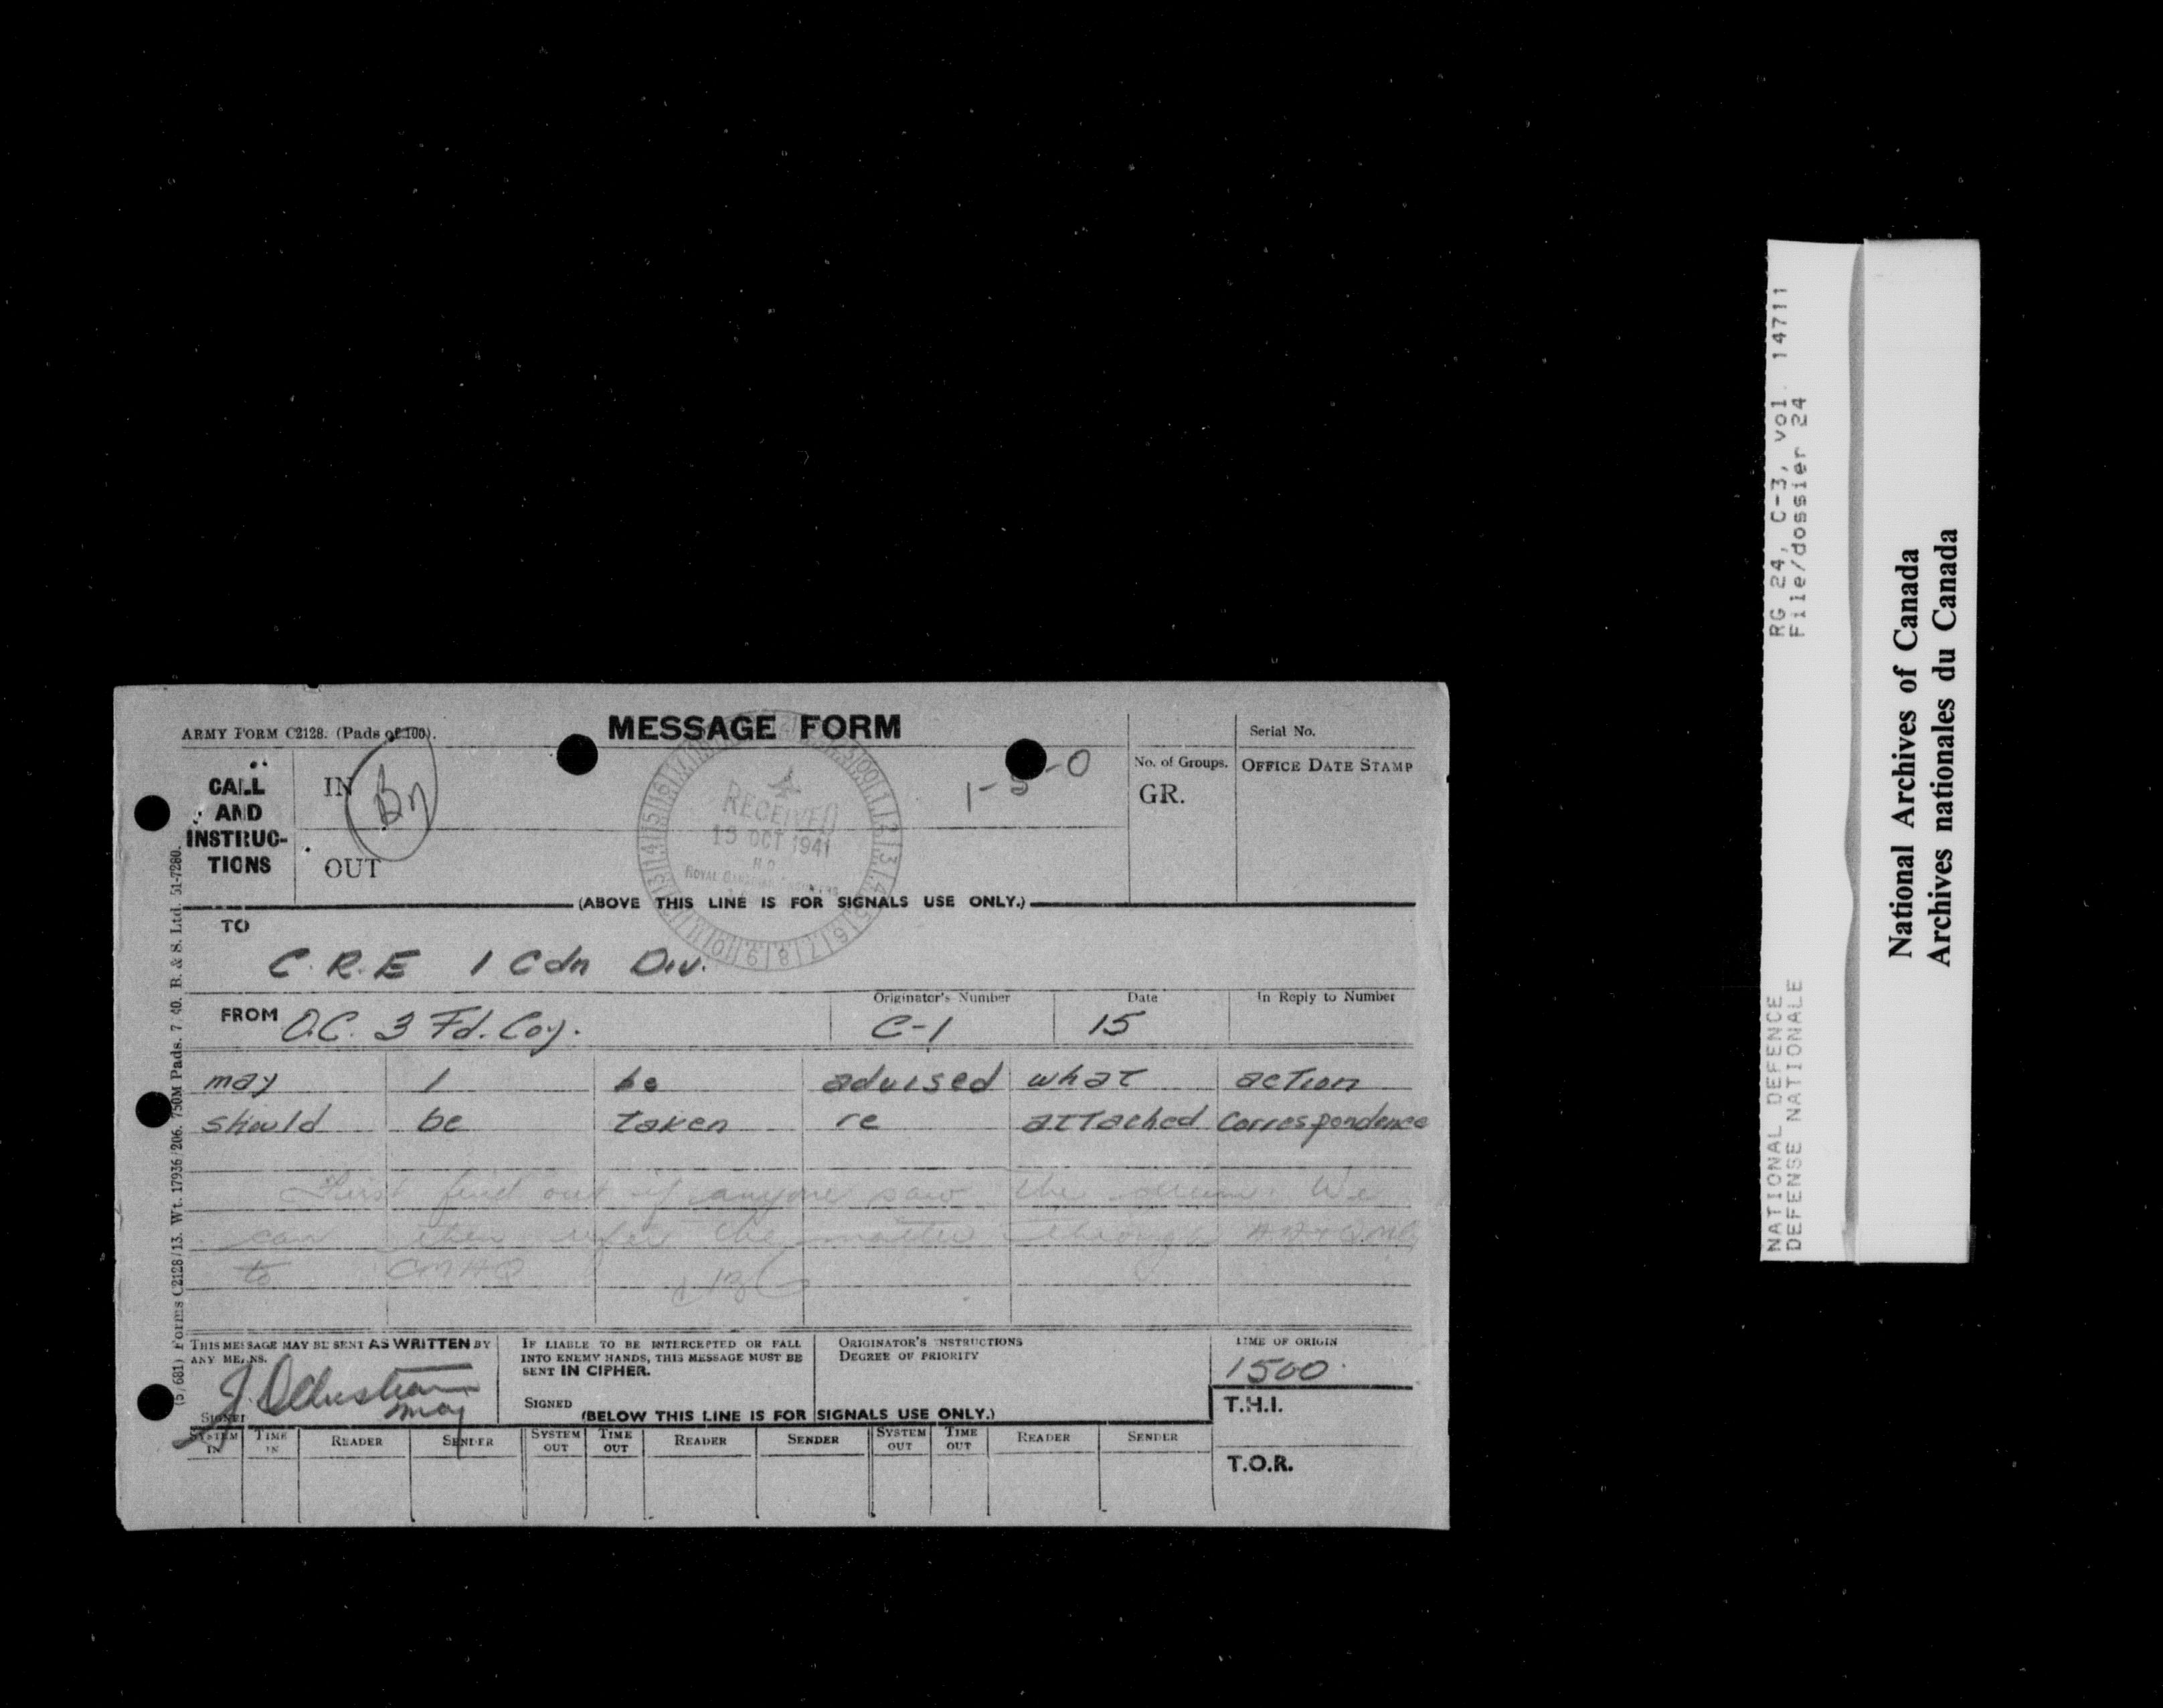 ARMY FORM C2128. (Pads of 100).
MESSAGE FORM
Serial No.
CALL AND INSTRUC-TIONS
IN
By
1-5-0
No. of Groups.
GR.
OFFICE DATE STAMP
RECEIVED
15 OCT 1941
H.Q.
ROYAL CANADIAN ENGINEERS
OUT
(ABOVE THIS LINE IS FOR SIGNALS USE ONLY.)
TO
C.R.E 1 Cdn Div.
FROM O.C. 3 Fd. Coy.
Originator's Number
C-1
Date
15
In Reply to Number
may I be advised what action
should be taken re attached correspondence
First find out if anyone saw the We
can then refer the matter through AA&QMG
to CMHQ
THIS MESSAGE MAY BE SENT AS WRITTEN BY ANY MEANS.
SIGNED
Maj
IF LIABLE TO BE INTERCEPTED OR FALL INTO ENEMY HANDS, THIS MESSAGE MUST BE SENT IN CIPHER.
SIGNED
ORIGINATOR'S INSTRUCTIONS
DEGREE OF PRIORITY
TIME OF ORIGIN
1500
(BELOW THIS LINE IS FOR SIGNALS USE ONLY.)
T.H.I.
SYSTEM IN TIME IN READER SENDER SYSTEM OUT TIME OUT READER SENDER SYSTEM OUT TIME OUT READER SENDER
T.O.R.
(5/681) Forms C2128/13. Wt. 17936/206. 750M Pads. 7/40. B. & S. Ltd. 51-7280.
RG 24, C-3, vol. 14711
File/dossier 24
NATIONAL DEFENCE
DEFENSE NATIONALE
National Archives of Canada
Archives nationales du Canada